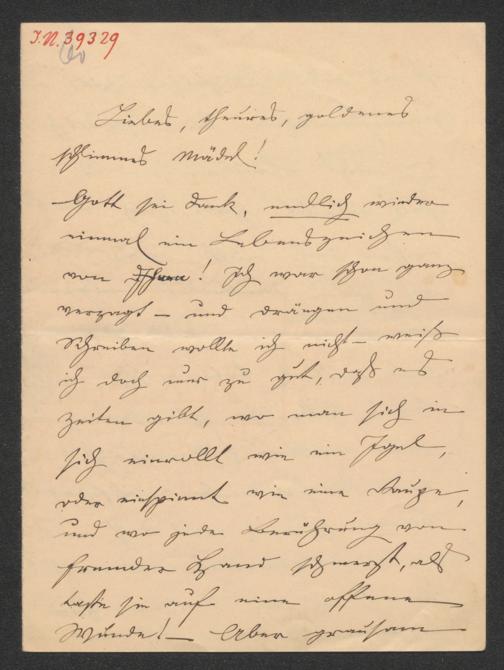 I.N. 39329
Liebes, theures, goldenes
schlimmes Mädel!
Gott sei Dank, endlich wieder
einmal ein Lebenszeichen
von Ihnen! Ich war schon ganz
verzagt – und drängen und
Schreiben wollte ich nicht – weiß
ich doch nur zu gut, daß es
Zeiten gibt, wo man sich in
sich einrollt wie ein Igel,
oder einspinnt wie eine Raupe,
und wo jede Berührung von
fremder Hand schmerzt, als
taste sie auf eine offene
Wunde! – Aber grausam